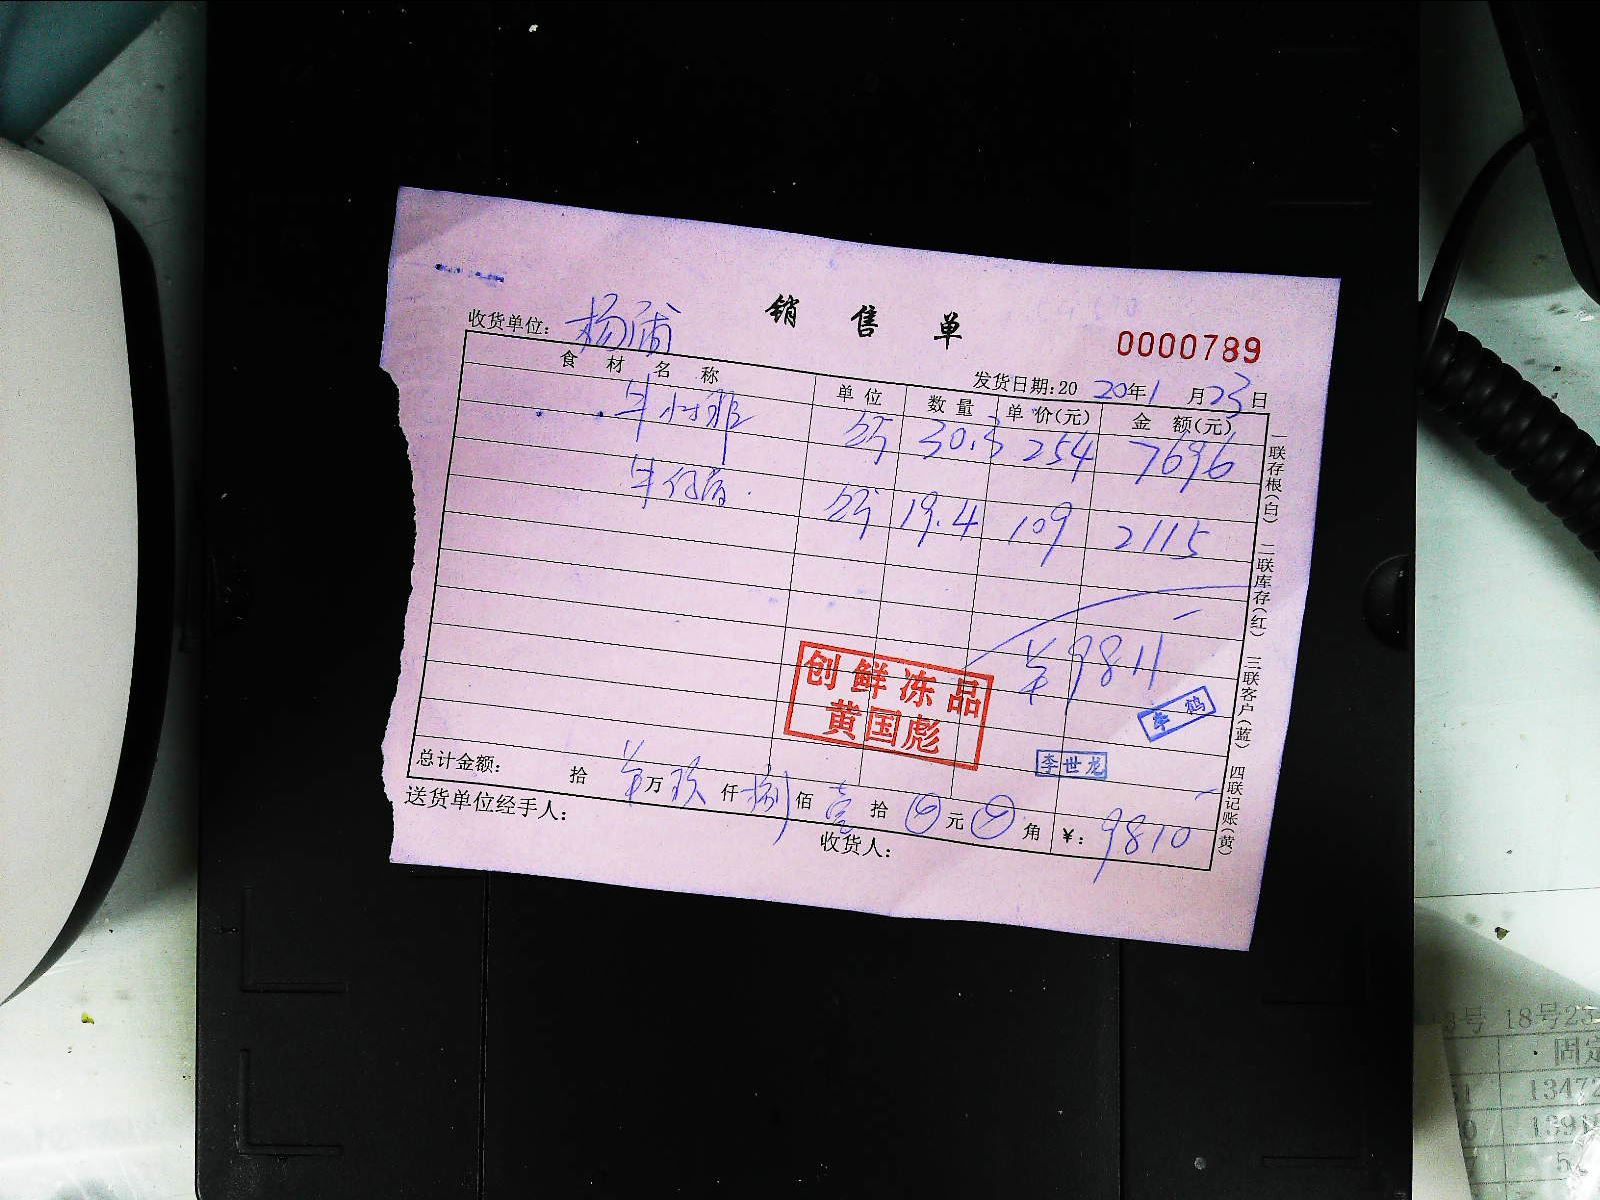 销售单
收货单位: 杨浦
0000789
发货日期:20 20年1月23日
食材名称 单位 数量 单价(元) 金额(元)
牛 公斤 30.3 254 7696
牛仔骨 公斤 19.4 109 2115
¥9811
创鲜冻品
黄国彪
李鹤
李世龙
总计金额: 拾 万玖仟捌佰壹拾 元 角 ¥: 9810
送货单位经手人:
收货人:
一联存根(白) 二联库存(红) 三联客户(蓝) 四联记账(黄)
18号
13472